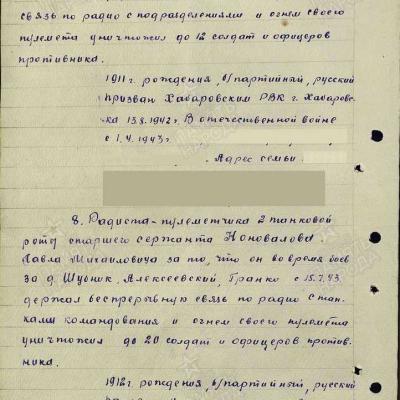 связь по радио с подразделениями и огнем своего
пулемета уничтожил до 12 солдат и офицеров
противника.
1911 г. рождения, б/партийный, русский
призван Хабаровским РВК г. Хабаровс-
ка 13.8.1942 г. В отечественной войне
с 1.4.1943 г.
Адрес семьи
8. Радиста-пулеметчика 2 танковой
роты старшего сержанта Коновалова
Павла Михайловича за то, что он во время боев
за д. Шубник, Алексеевский, Гранко с 15.7.43
держал беспрерывную связь по радио с тан-
ками командования и огнем своего пулемета
уничтожил до 20 солдат и офицеров против-
ника.
1912 г. рождения, б/партийный, русский